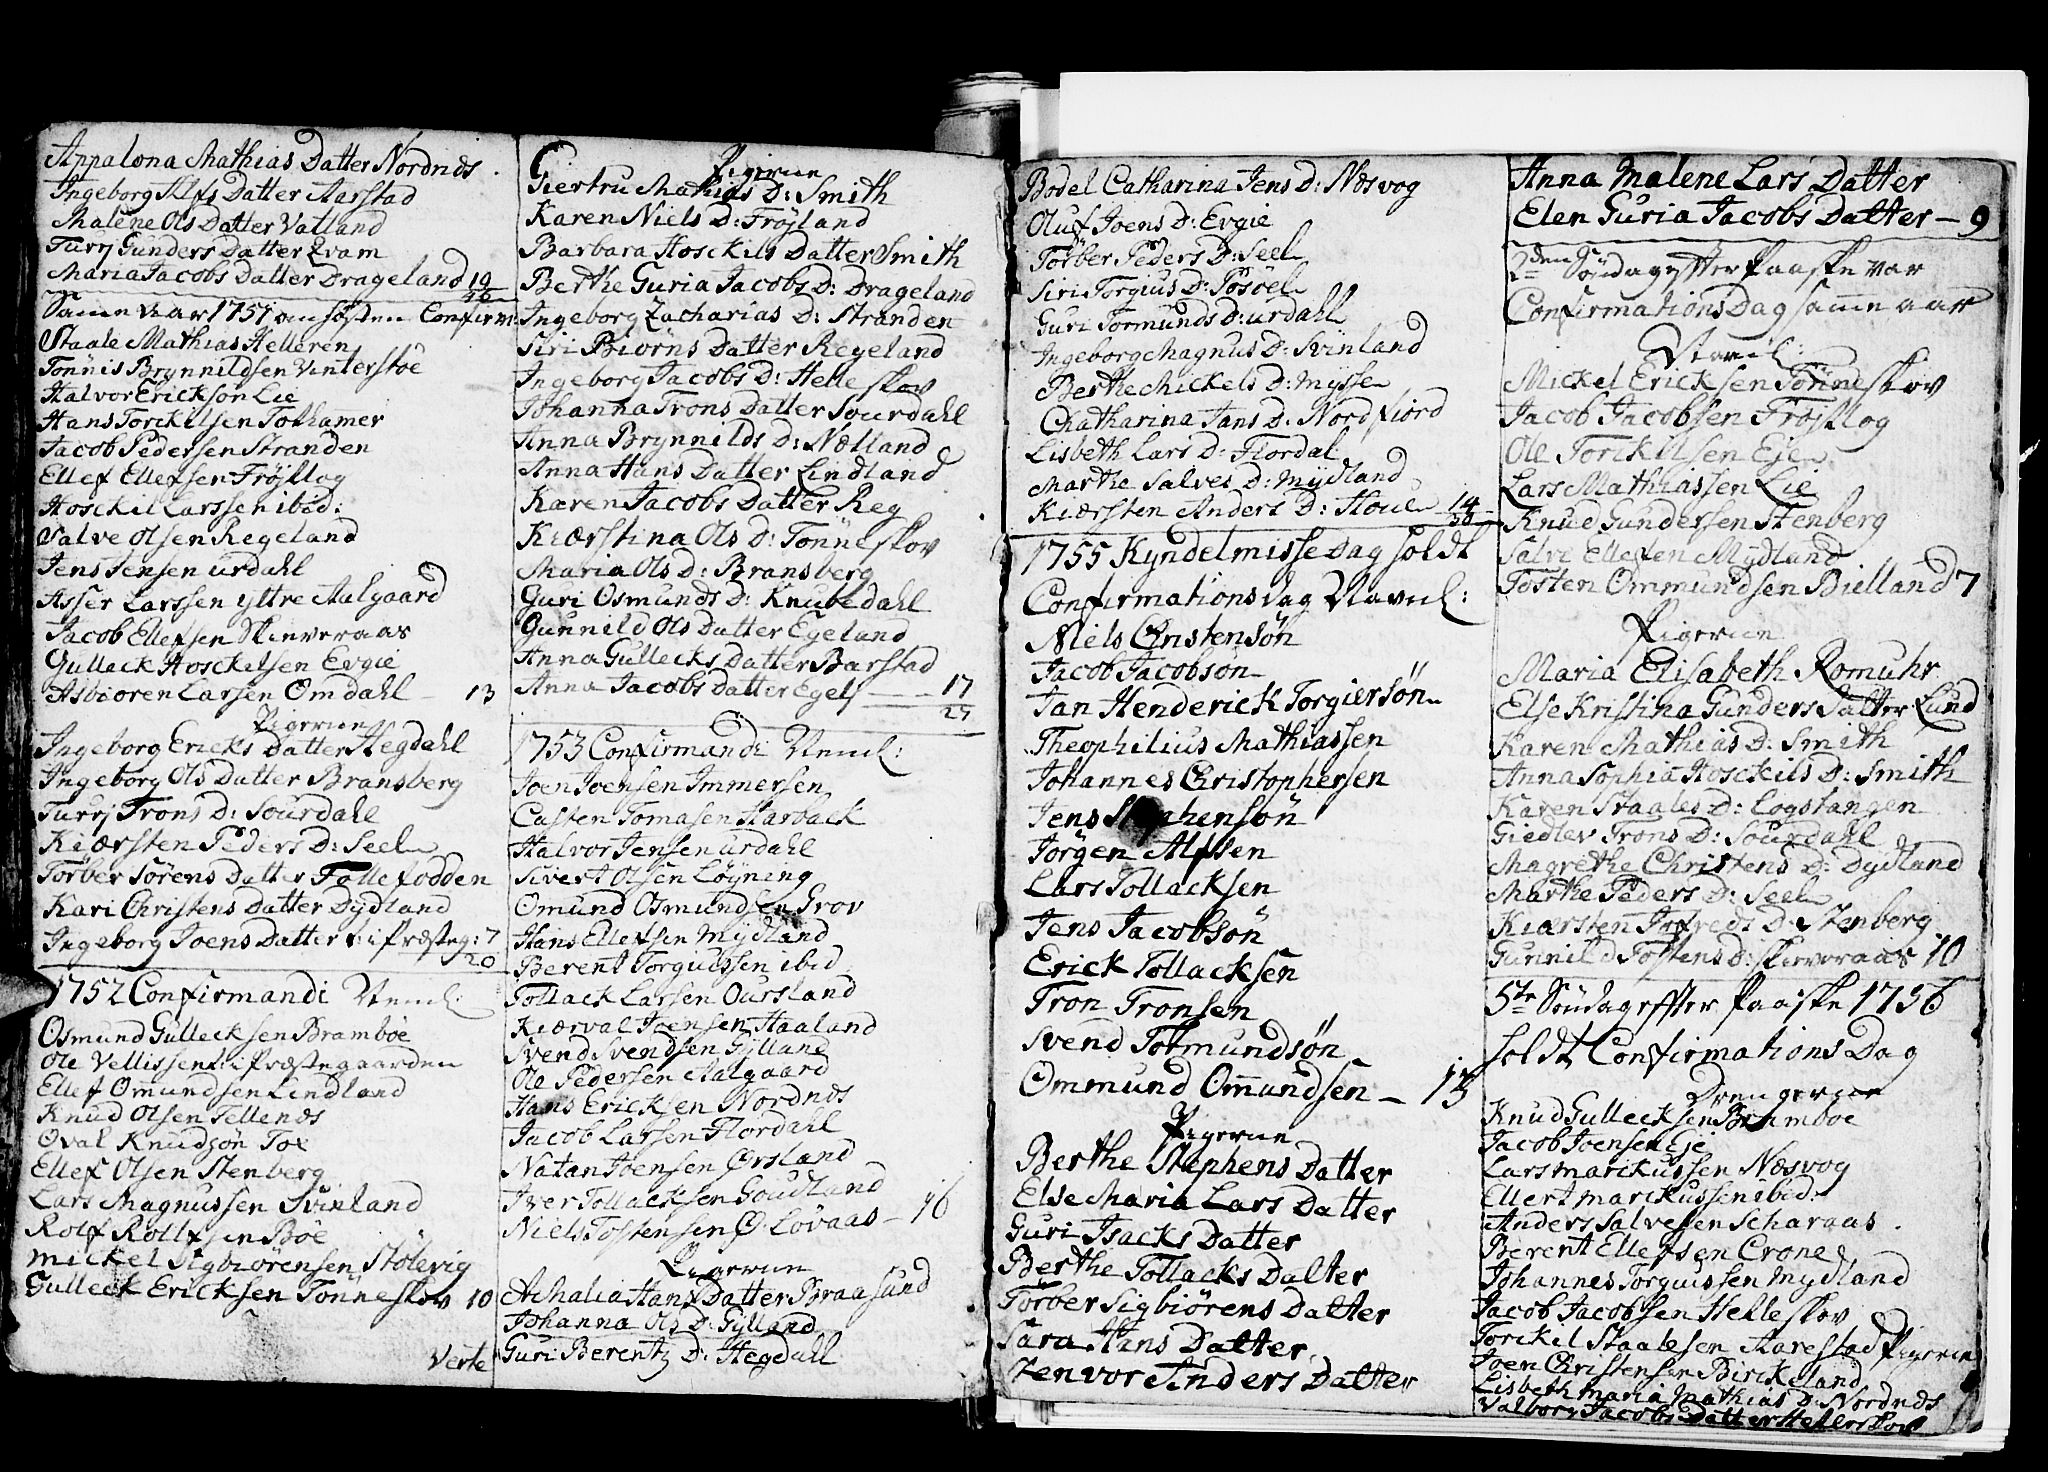 Appalona Mathias Datter Nordnds
Ingeborg Alfs Datter Aarstad
Malene Ols Datter Vatland
Turrj Gunders Datter Qvam
Maria Jacobs Datter Drageland 19
Samme aar 1751 om høsten Confirm:
Staale Mathias Helleren
Tönnis Brynnildsen Vinterstöe
Halvor Erickson Lie
Hans Torckelsen Tothamer
Jacob Pedersen Stranden
Ellef Ellefsen Fröjlog
Hosckil Larssen ibid:
Salve Olsen Regeland
Jens Jensen urdahl
Asser Larssen yttre Aalgaard
Jacob Ellefsen Skieveraas
Gulleck Hosckelsen Evgie
Asbiören Larsen Omdahl - 13
Pigerne
Ingeborg Ericks Datter Hegdahl
Ingeborg Ols Datter Bransberg
Turrj Trons D: Sourdahl
Kiærsten Peders D: Seel
Törber Sörens Datter Fallefodden
Kari Christens Datter Dydland
Ingeborg Joens Datter i Præsteg: 7
20
1752 Confirmandi
Osmund Gullecksen Bramböe
Ole Vellissen i Præstegaarden
Ellef Omundsen Lindland
Knud Olsen Tellends
Oval Knudson Toe
Ellef Olsen Stenberg
Lars Magnussen Svinland
Rolf Rolfsen Böe
Mickel Sigbiörensen Stölevig
Gulleck Ericksen Tönneskov 10
Verte
Pigerne
Giertru Mathias D: Smith
Karen Niels D: Fröjland
Barbara Hosckils Datter Smith
Berthe Guria Jacobs D: Drageland
Ingeborg Zacharias D: Stranden
Siri Biörns Datter Regeland
Ingeborg Jacobs D: Helleskov
Johanna Trons Datter Sourdahl
Anna Brynnilds D: Nælland
Anna Hans Datter Lindland
Karen Jacobs Datter Reg
Kiærstina Ols D: Tönneskov
Maria Ols D: Bransberg
Guri Osmunds D: Knubedahl
Gunnild Ols Datter Egeland
Anna Gullecks Datter Barstad
Anna Jacobs Datter Egel - 17
27
1753 Confirmandi
Joen Joensen Immersen
Casten Tomasen Harback
Halvor Jensen urdahl
Sivert Olsen Löyning
Omund Osmundsen Grov
Hans Ellefsen Mydland
Berent Torguissen ibid
Tollack Larsen Oursland
Kiærval Joensen Haaland
Svend Svendsen Gylland
Ole Pedersen Aalgaard
Hans Ericksen Nordnds
Jacob Larsen Flordahl
Natan Joensen Ørsland
Iver Tollacksen Goudland
Niels Tostensen Ø. Lövaas - 16
Pigerne
Athalia Hans Datter Braasund
Johanna Ols D: Gylland
Guri Berentz D: Hegdahl
Bodel Catharina Jens D: Næsvog
Oluf Joens D: Evgie
Törber Peders D: Seel
Siri Torgius D: Posöel
Guri Tormunds D: urdahl
Ingeborg Magnus D: Svinland
Berthe Mickels D: Mysse
Chatharina Jans D: Nordfiord
Lisbeth Lars D: Flordal
Marthe Salves D: Mydland
Kiærsten Anders D: Houe - 14
30
1755 Kyndelmisse Dag holdt
Confirmations dag
Niels Christensön
Jacob Jacobson
Jan Henderick Torgiersön
Theophilius Mathiassen
Johannes Christophersen
Jens Stephensön
Jörgen Alfsen
Lars Tollacksen
Jens Jacobsön
Erick Tollacksen
Tron Tronsen
Svend Tormundsön
Ommund Omundsen - 13
Pigerne
Berthe Stephens Datter
Else Maria Lars Datter
Guri Isacks Datter
Berthe Tollacks Datter
Törber Sigbiörens Datter
Sara Hans Datter
Zenvor Anders Datter
Anna Malene Lars Datter
Elen Guria Jacobs Datter - 9
2den Söndag effter Paaske var
Confirmations Dag samme aar
Mickel Ericksen Tönneskov
Jacob Jacobsen Fröjlog
Ole Torckilsen Eje
Lars Mathiassen Lie
Knud Gundersen Stenberg
Salve Ellefsen Mydland
Tosten Ommundsen Bielland 7
Pigerne
Maria Elisabeth Romuhr
Else Kristina Gunders Datter Lund
Karen Mathias D: Smith
Anna Sophia Hosckils D: Smith
Karen Staales D: Logstangen
Giedlev Trons D: Sourdahl
Magrethe Christens D: Dydland
Marthe Peders D: Seel
Kiærsten Jofreds D: Stenberg
Gunnild Tostens D: Skieveraas 10
5te Söndag effter Paaske 1756
holdt Confirmations Dag
Drengerne
Knud Gullecksen Bramboe
Jacob Joensen Eje
Lars Marckussen Næsvog
Ellert Marckussen ibid.
Anders Salvesen Scharaas
Berent Ellefsen Crone
Johannes Torguissen Mydland
Jacob Jacobsen Helleskov
Torckil Staalesen Aarestad Pigerne
Joen Christensen Birckeland
Lisbeth Maria Mathias D: Nordnds
Valborg Jacobs Datter Helleskov